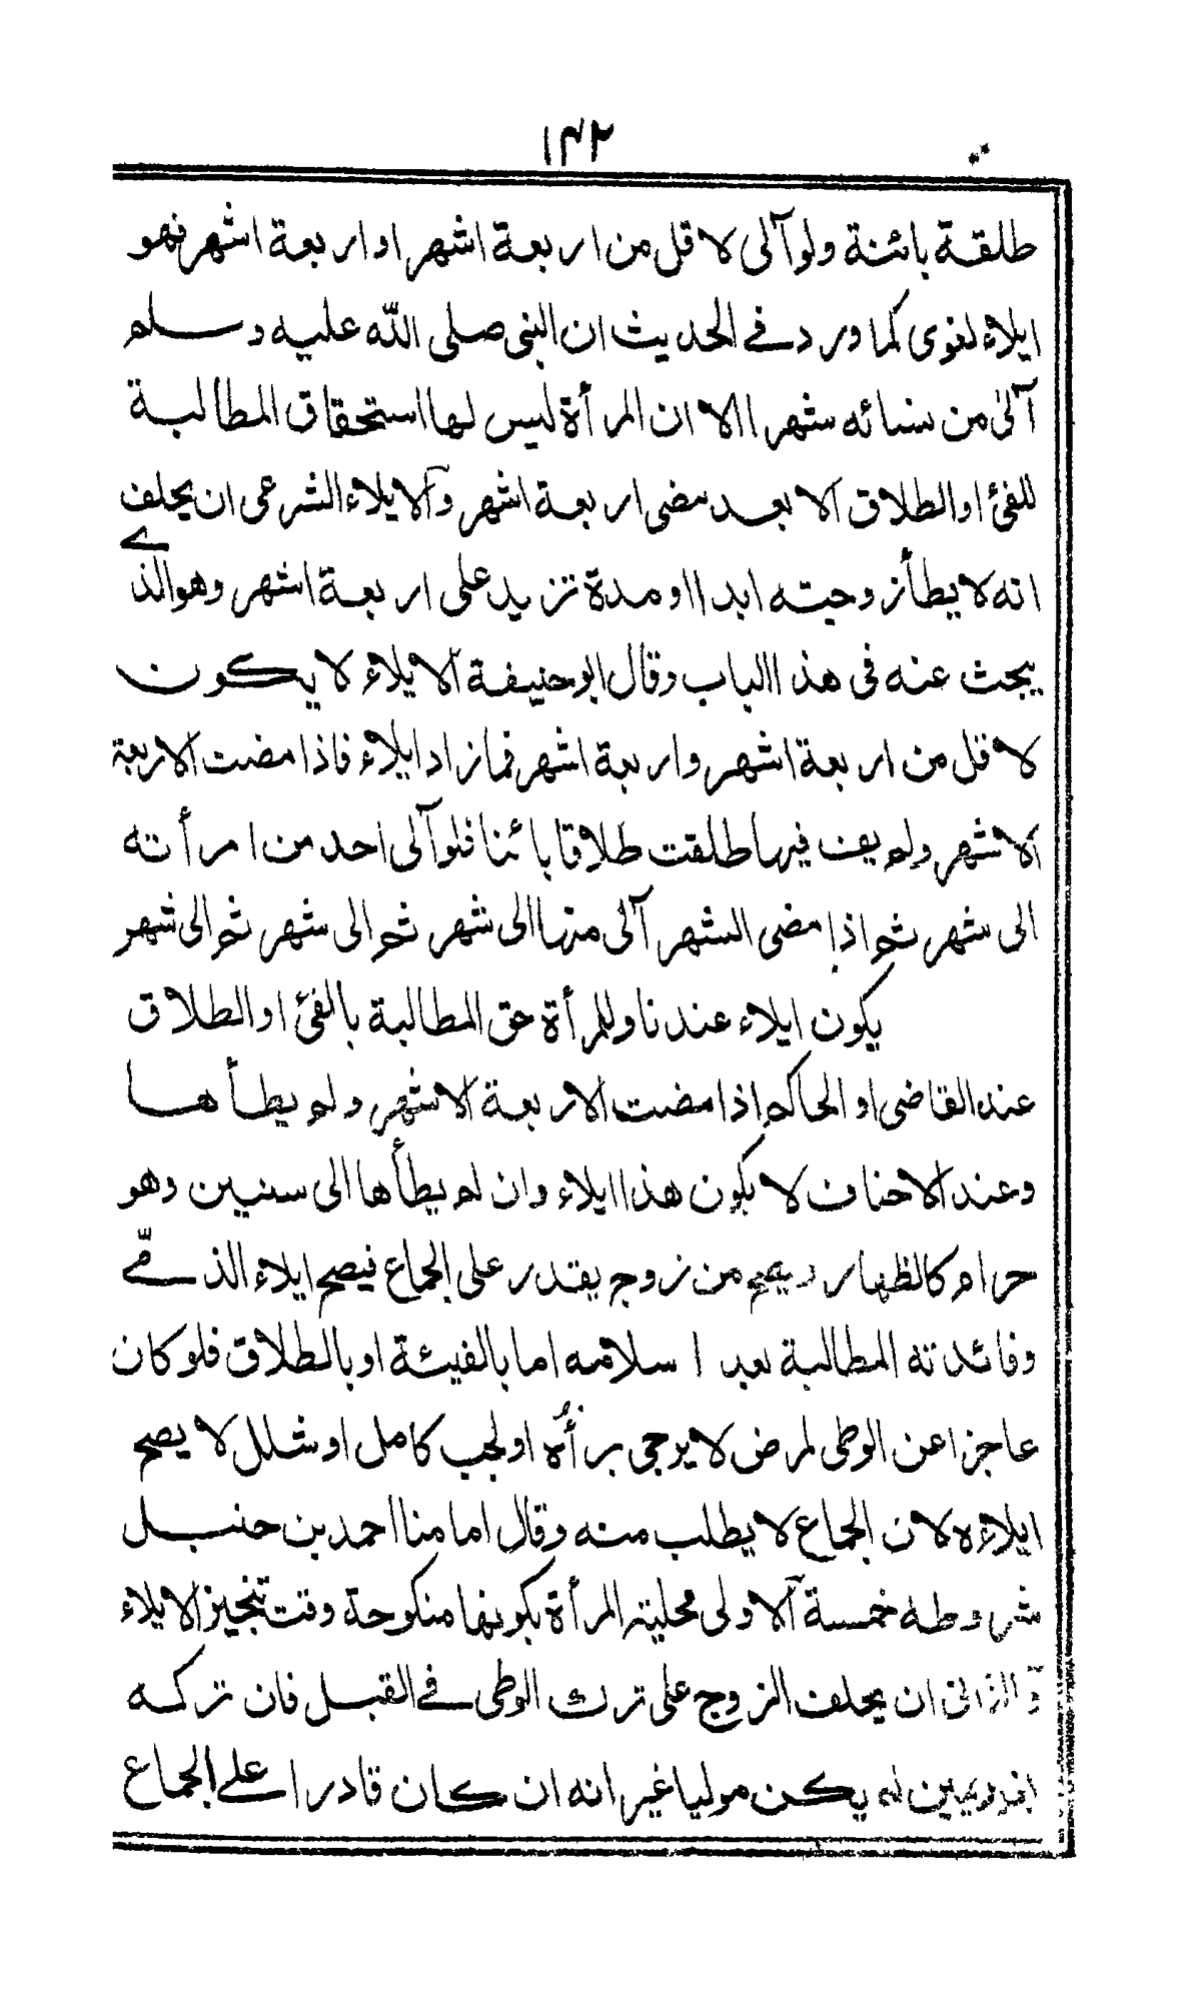 ١٤٢
طلقة بائنة ولو آلى لاقل من اربعة اشهر او اربعة اشهر فهو
ايلاء لغوى كما ورد في الحديث ان النبى صلى الله عليه وسلم
آلى من نسائه شهرا الا ان المرأة ليس لها استحقاق المطالبة
للفئ او الطلاق الا بعد مضى اربعة اشهر وآلايلاء الشرعى ان يحلف
انه لا يطأ زوجته ابدا او مدة تزيد على اربعة اشهر وهو الذے
يبحث عنه فى هذا الباب وقال ابو حنيفة آلايلاء لا يكون
لاقل من اربعة اشهر واربعة اشهر فما زاد ايلاء فاذا مضت الاربعة
الاشهر ولم يف فيها طلقت طلاقا بائنا فلو آلى احد من امرأته
الى شهر ثم اذا مضى الشهر آلى منها الى شهر ثم الى شهر ثم الى شهر
يكون ايلاء عندنا وللمرأة حق المطالبة بالفئ او الطلاق
عند القاضى او الحاكم اذا مضت الاربعة الاشهر ولم يطأها
وعند الاحناف لا يكون هذا ايلاء وان لم يطأها الى سنين وهو
حرام كالظهار ويصح من زوج يقدر على الجماع فيصح ايلاء الذمّے
وفائدته المطالبة بعد اسلامه اما بالفيئة او بالطلاق فلو كان
عاجزا عن الوطى لمرض لا يرجى برأه او لجب كامل او شلل لا يصح
ايلاءه لان الجماع لا يطلب منه وقال امامنا احمد بن حنبل
شروطه خمسة آلاولى محلية المرأة بكونها منكوحة وقت تنجيز الايلاء
ان يحلف الزوج على ترك الوطى في القبل فان تركه
يمين لم يكن موليا غير انه ان كان قادرا على الجماع